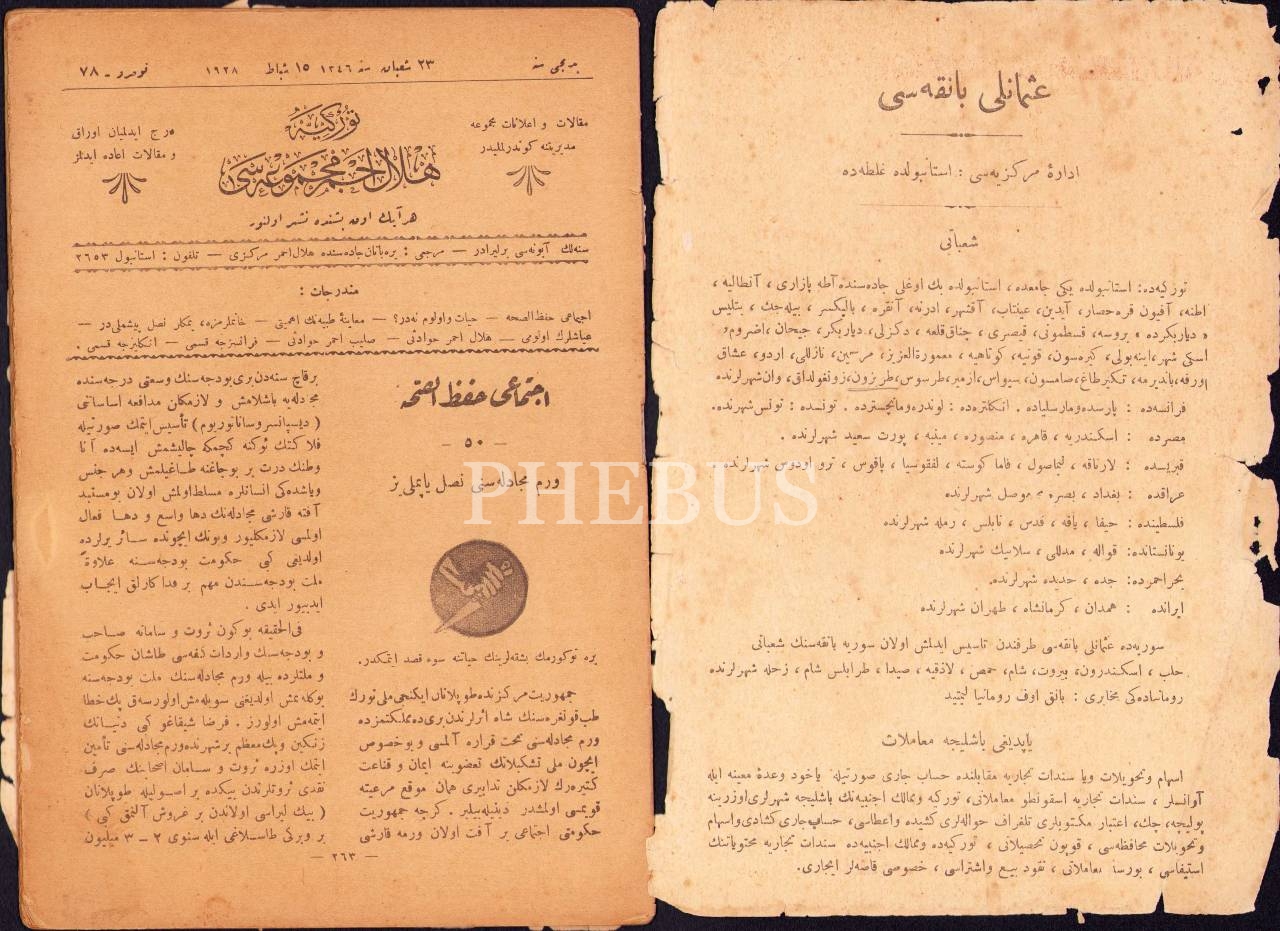 یدنجی سنه
٢٣ شعبان سنه ١٣٤٦ ١٥ شباط ١٩٢٨
نومرو ـ ٧٨
مقالات و اعلانات مجموعه
مدیریتنه کوندرلملیدر
تورکیه
هلال احمر مجموعه سی
درج ایدلمیان اوراق
و مقالات اعاده ایدلمز
هر آیك اون بشنده نشر اولنور
سنه لك آبونه سی بر لیرادر — مرجعی : یره باتان جاده سنده هلال احمر مرکزی — تلفون : استانبول ٢٦٥٣
مندرجات :
اجتماعی حفظ الصحه — حیات و اولوم نه در؟ — معاینهٔ طبیه نك اهمیتی — خانملرمزه، یمکلر نصل پیشملی در —
عیاشلرك اولومی — هلال احمر حوادثی — صلیب احمر حوادثی — فرانسزجه قسمی — انکلیزجه قسمی .
اجتماعی حفظ الصحه
— ٥٠ —
ورم مجادله سنی نصل یاپملی یز
یره توکورمك بشقه لرینك حیاتنه سوء قصد ایتمکدر.
جمهوریت مرکزنده طوپلانان ایکنجی ملی تورك
طب قونغره سنك شاه اثرلرندن بری ده مملکتمزده
ورم مجادله سنی تحت قراره آلمسی و بو خصوص
ایچون ملی تشکیلاتك تعضوینه ایمان و قناعت
کتیره رك لازمکلن تدابیری همان موقع مرعیته
قویمسی اولمشدر دینیله بیلیر. کرچه جمهوریت
حکومتی اجتماعی بر آفت اولان ورمه قارشی
بر قاچ سنه دن بری بودجه سنك وسعتی درجه سنده
مجادله یه باشلامش و لازمکلن مدافعه اساساتنی
( دیسپانسر و ساناتوریوم ) تأسیس ایتمك صورتیله
فلاکتك ئوکنه کچمکه چالیشمش ایسه ده آنا
وطنك درت بر بوجاغنه طاغیلمش و هر جنس
و یاشده کی انسانلره مسلط اولمش اولان بو مستبد
آفته قارشی مجادله نك دها واسع و دها فعال
اولمسی لازمکلیور و بونك ایچونده سائر یرلرده
اولدیغی کبی حکومت بودجه سنه علاوةً
ملت بودجه سندن مهم بر فداکارلق ایجاب
ایدییور ایدی .
فی الحقیقه بوکون ثروت و سامانه صاحب
و بودجه سنك واردات کفه سی طاشان حکومت
و ملتلرده بیله ورم مجادله سنك ملت بودجه سنه
یوکله نمش اولدیغنی سویله مش اولورسه ق پك خطا
ایتمه مش اولورز . فرضا شیقاغو کبی دنیانك
زنکین و پك معظم بر شهرنده ورم مجادله سنی تأمین
ایتمك اوزره ثروت و سامان اصحابنك صرف
نقدی ثروتلرندن بیکده بر اصولیله طوپلانان
( بیك لیراسی اولاندن بر غروش آلنمق کبی )
بر ویرکی طاسلاغی ایله سنوی ٢ – ٣ میلیون
— ٢٦٣ —
عثمانلی بانقه سی
ادارهٔ مرکزیه سی : استانبولده غلطه ده
شعباتی
تورکیه ده: استانبولده یکی جامعده ، استانبولده بك اوغلی جاده سنده آطه پازاری ، آنطالیه ،
اطنه، آفیون قره حصار، آیدین، عینتاب، آقشهر، ادرنه، آنقره، بالیکسر، بیله جك، بتلیس
« دیاربکرده » بروسه، قسطمونی، قیصری ، چناق قلعه ، دکزلی، دیاربکر، جیحان، اضروم،
اسکی شهر، اینه بولی، کیره سون، قونیه، کوتاهیه ، معمورة العزیز، مرسین، نازللی، اردو، عشاق
اورفه، باندیرمه ، تکیرطاغ، صامسون، سیواس، ازمیر، طرسوس، طربزون، زونغولداق، وان شهرلرنده
فرانسه ده : پارسده و مارسلیاده . انکلتره ده : لوندره و مانچسترده . تونسده : تونس شهرنده.
مصرده : اسکندریه ، قاهره ، منصوره ، مینیه ، پورت سعید شهرلرنده .
قبریسده : لارناقه ، لیماصول ، فاماکوسته ، لفقوسیا ، بافوس ، ترواودوس شهرلرنده .
عراقده : بغداد ، بصره ، موصل شهرلرنده
فلسطینده : حیفا ، یافه ، قدس ، نابلس ، رمله شهرلرنده
یونانستانده: قواله ، مدللی ، سلانیك شهرلرنده
بحر احمرده: جده ، حدیده شهرلرنده.
ایرانده : همدان ، کرمانشاه ، طهران شهرلرنده
سوریه ده عثمانلی بانقه سی طرفندن تاسیس ایدلش اولان سوریه بانقه سنك شعباتی
حلب ، اسکندرون، بیروت، شام، حمص ، لاذقیه ، صیدا ، طرابلس شام ، زحله شهرلرنده
رومانیاده کی مخابری : بانق اوف رومانیا لیمیتید
یاپدیغی باشلیجه معاملات
اسهام و تحویلات ویا سندات تجاریه مقابلنده حساب جاری صورتیله یاخود وعدهٔ معینه ایله
آوانسلر ، سندات تجاریه اسقونطو معاملاتی، تورکیه و ممالك اجنبیه نك باشلیجه شهرلری اوزرینه
پولیچه، چك، اعتبار مکتوبلری تلغراف حواله لری کشیده و اعطاسی، حساب جاری کشادی و اسهام
و تحویلات محافظه سی ، قوپون تحصیلاتی ، تورکیه ده و ممالك اجنبیه ده سندات تجاریه محتویاتنك
استیفاسی ، بورسا معاملاتی ، نقود بیع و اشتراسی ، خصوصی قاصه لر ایجاری.
PHEBUS